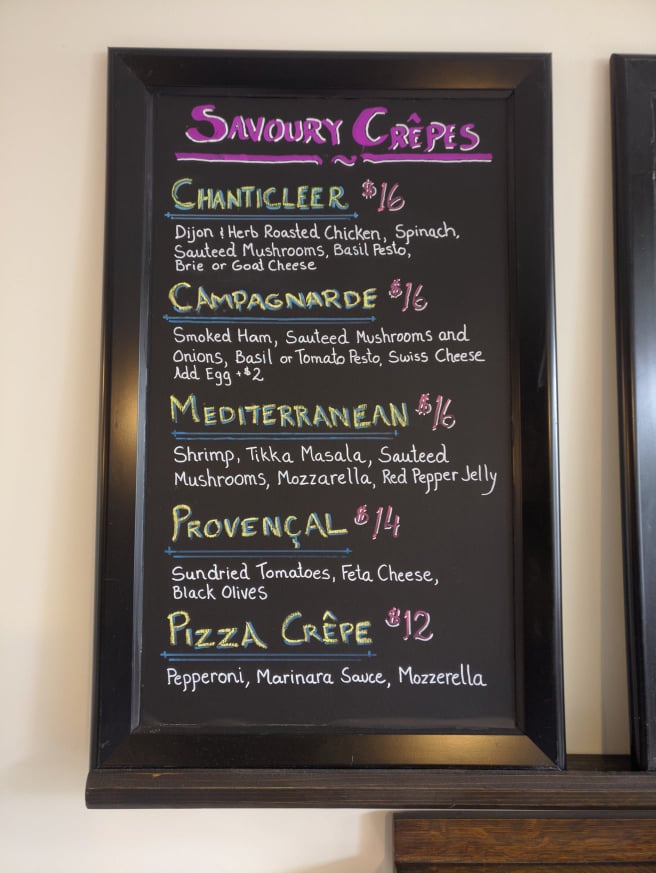 Savoury Crêpes
~
Chanticleer $16
Dijon & Herb Roasted Chicken, Spinach,
Sauteed Mushrooms, Basil Pesto,
Brie or Goat Cheese
Campagnarde $16
Smoked Ham, Sauteed Mushrooms and
Onions, Basil or Tomato Pesto, Swiss Cheese
Add Egg +$2
Mediterranean $16
Shrimp, Tikka Masala, Sauteed
Mushrooms, Mozzarella, Red Pepper Jelly
Provençal $14
Sundried Tomatoes, Feta Cheese,
Black Olives
Pizza Crêpe $12
Pepperoni, Marinara Sauce, Mozzerella